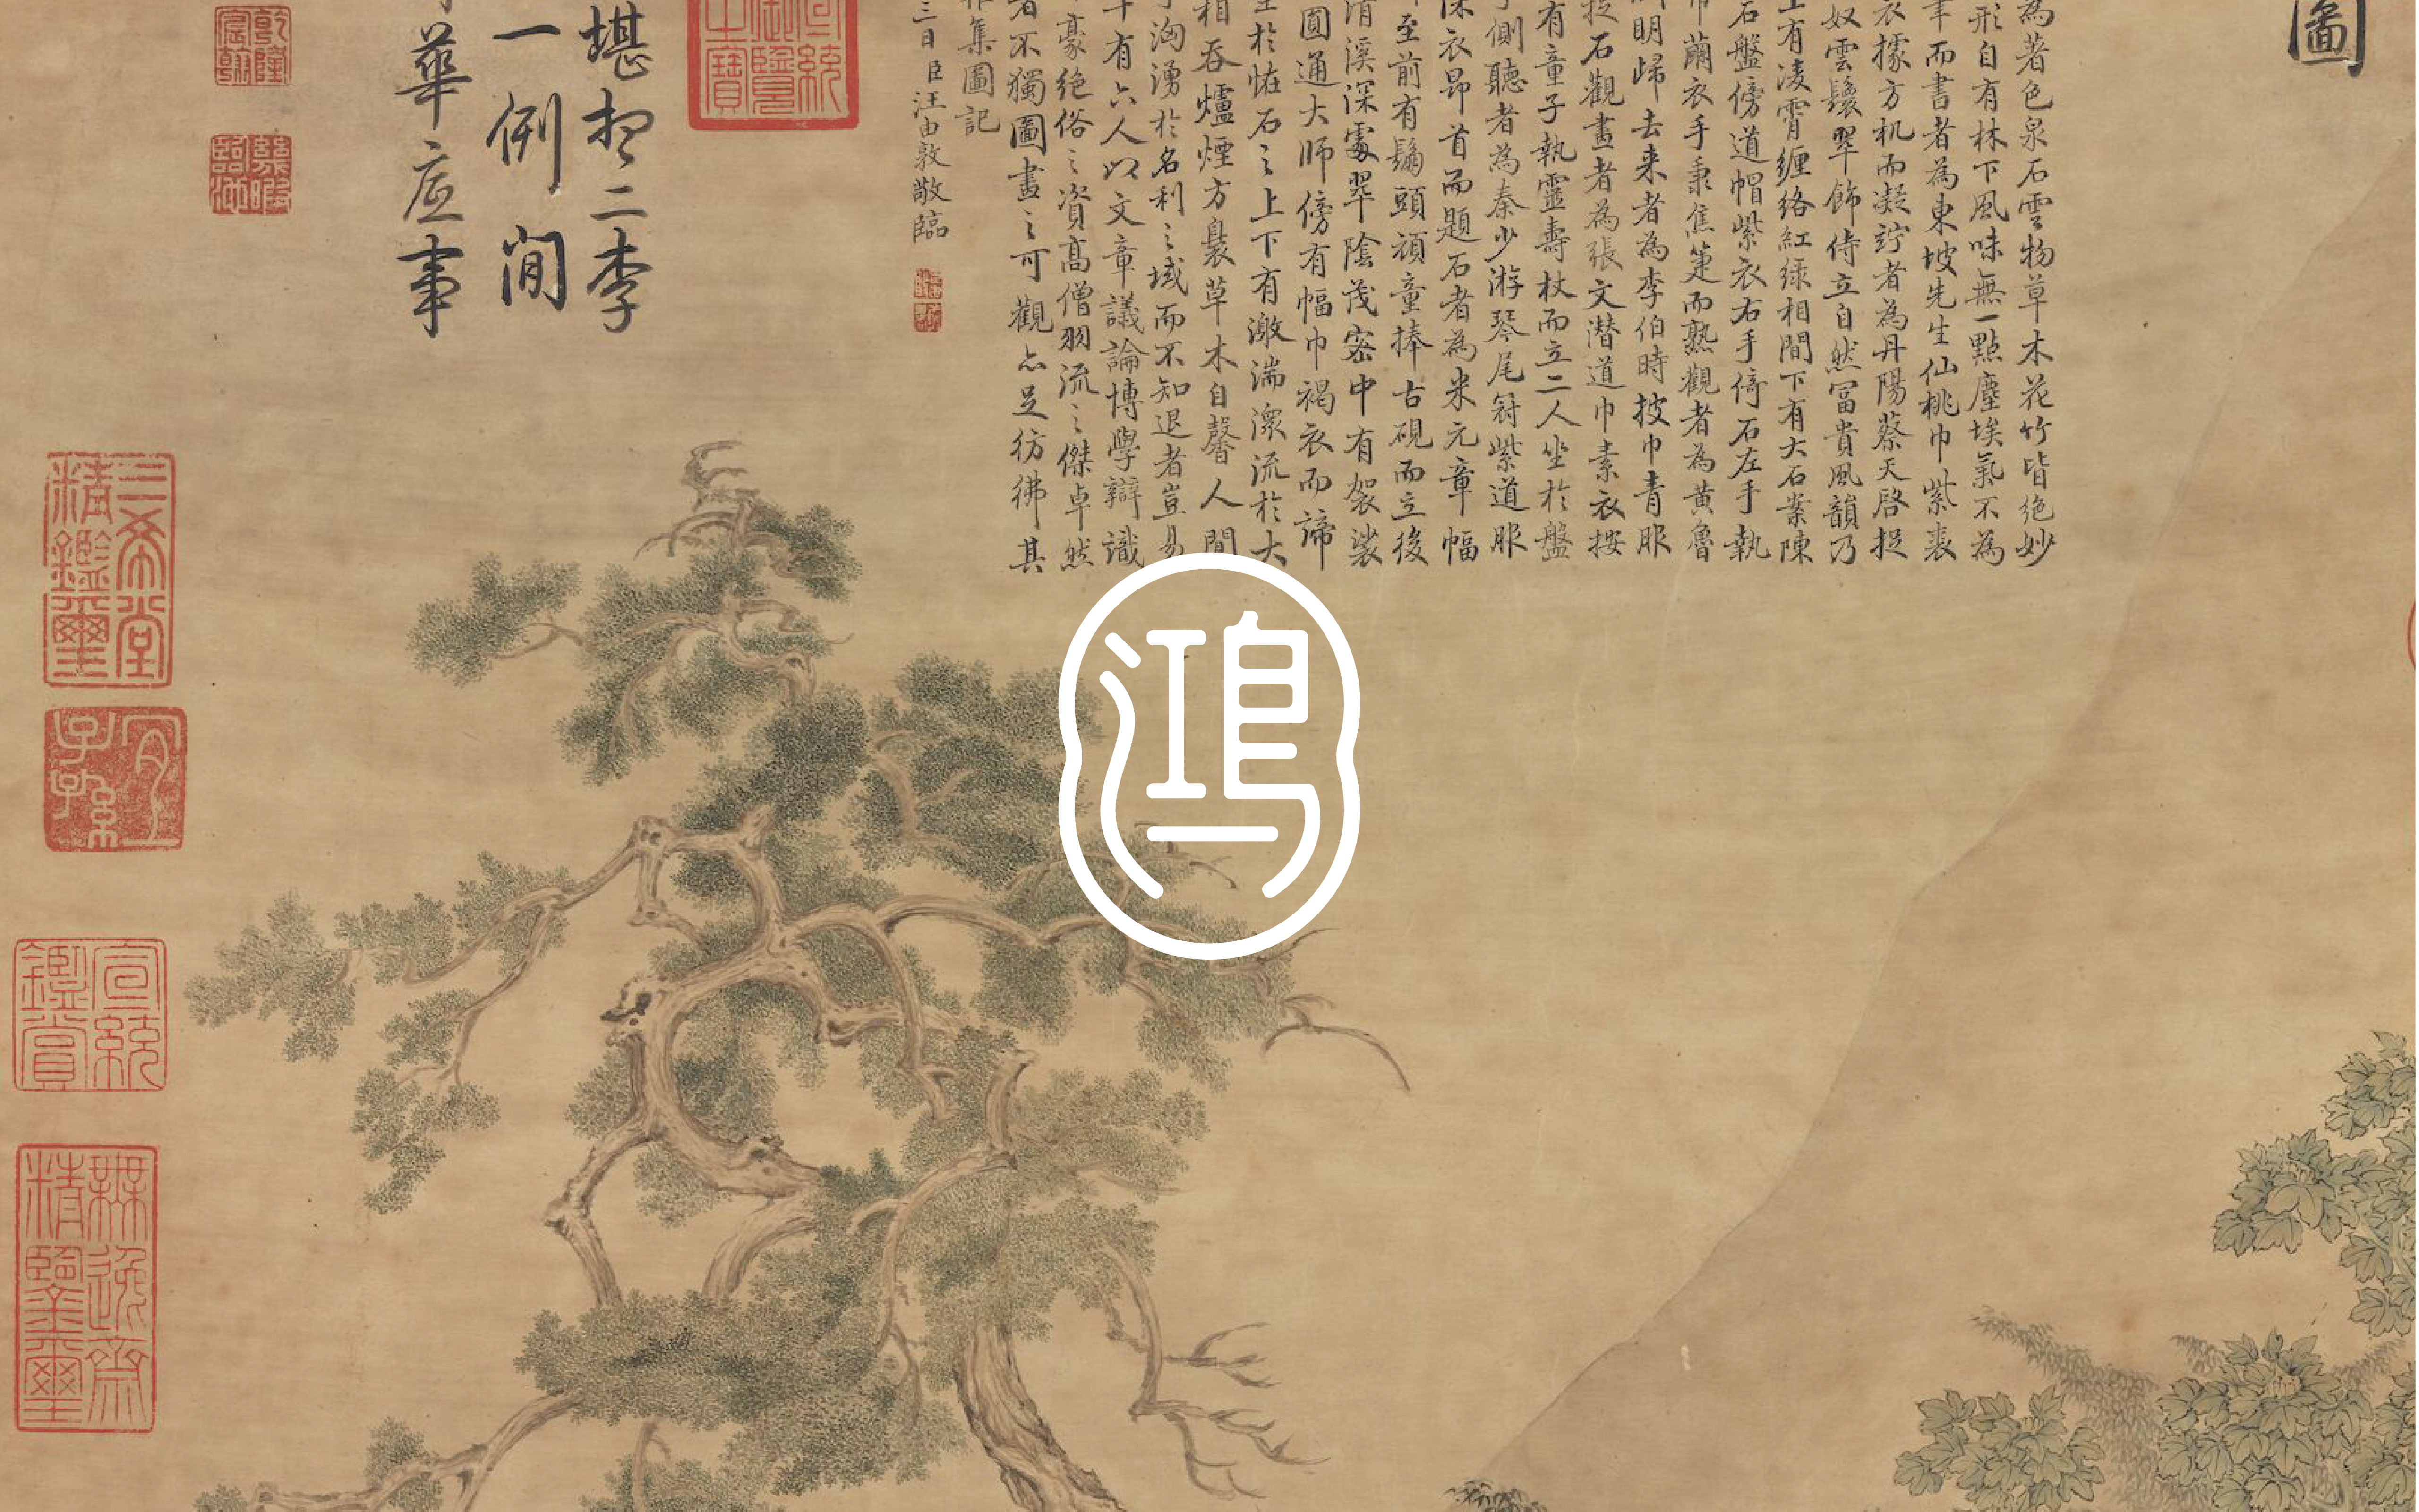 圖
為著色泉石雲物草木花竹皆絕妙
形自有林下風味無一點塵埃氣不為
筆而書者為東坡先生仙桃巾紫裘
衣據方机而凝竚者為丹陽蔡天啓捉
奴雲鬟翠飾侍立自然富貴風韻乃
上有凌霄纏絡紅綠相間下有大石案陳
石盤傍道帽紫衣右手倚石左手執
巾繭衣手秉焦箑而熟觀者為黃魯
淵明歸去来者為李伯時披巾青服
捉石觀畫者為張文潛道巾素衣按
有童子執靈壽杖而立二人坐於盤
側聽者為秦少游琴尾冠紫道服
深衣昂首而題石者為米元章幅
至前有鬅頭頑童捧古硯而立後
清溪深處翠陰茂密中有袈裟
圓通大師傍有幅巾褐衣而諦
坐於恠石之上下有激湍潨流於大
相吞爐煙方裊草木自馨人間
洶湧於名利之域而不知退者豈易
有六人以文章議論博學辯識
豪絕俗之資高僧羽流之傑卓然
者不獨圖畫之可觀亦足彷彿其
雅集圖記
三日臣汪由敦敬臨
宣統御覽之寶
堪想二李
一例間
華底事
乾隆宸翰
幾暇臨池
三希堂精鑑璽
宜子孫
宣統鑑賞
無逸齋精鑒璽
鴻